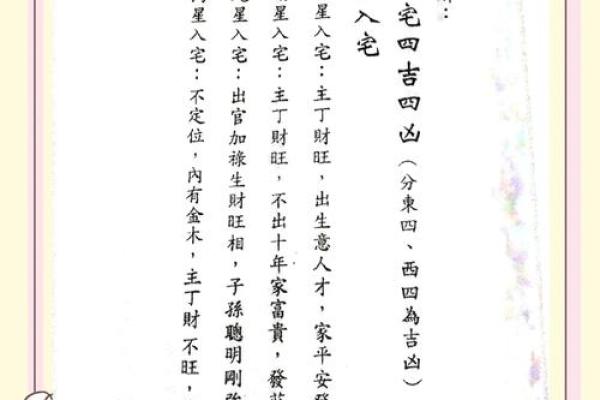 宅四吉四凶（分東四、西四為吉凶）
入宅
星入宅：主丁財旺，出生意人才，家平安發
星入宅：主丁財旺，不出十年家富貴，發
星入宅：出官加祿生財旺相，子孫聰明剛強
星入宅：不定位，內有金木，主丁財不旺，